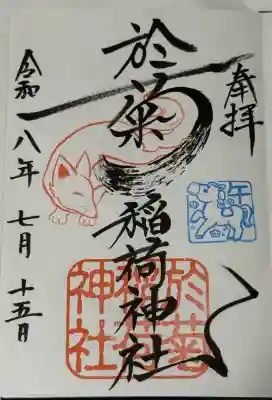 奉拝
於菊稲荷神社
令和八年 七月 十五日
午
於菊
稲荷
神社